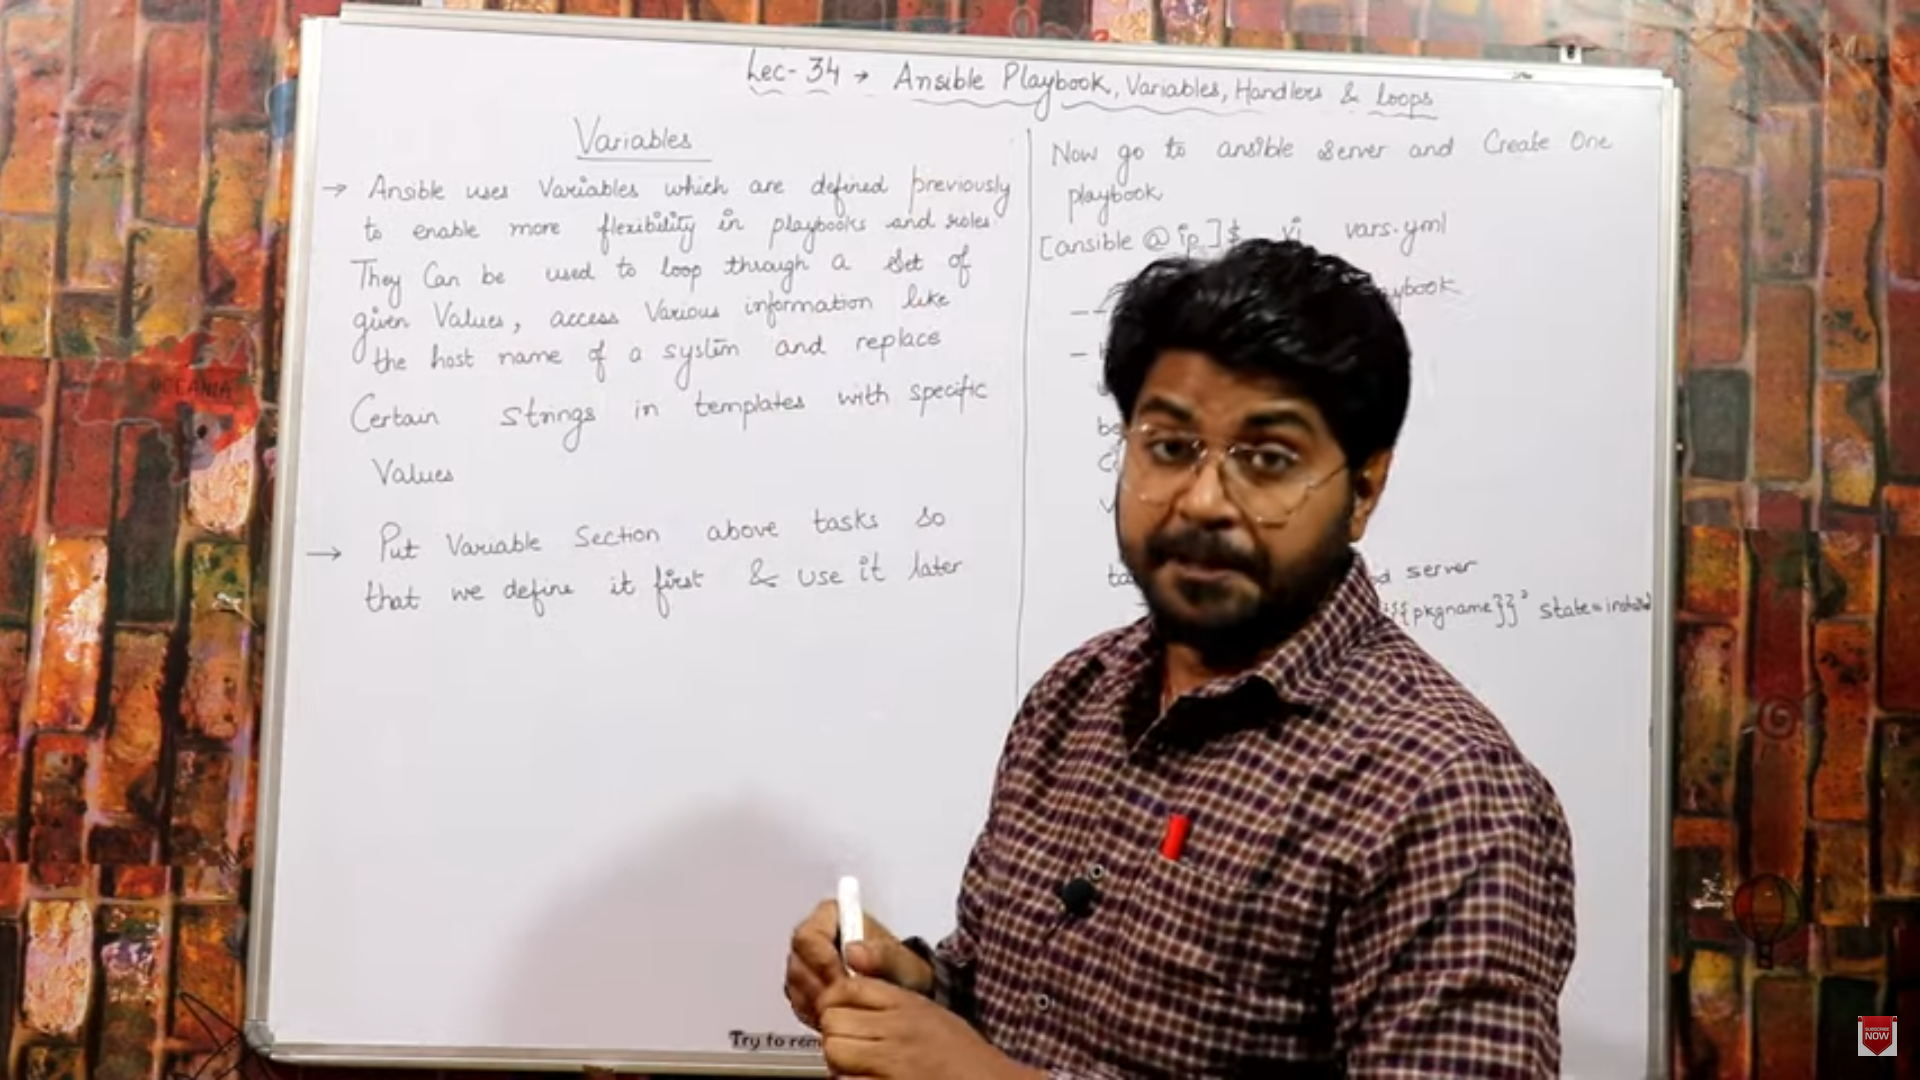 Lec-34 → Ansible Playbook, Variables, Handlers & Loops
Variables
→ Ansible uses Variables which are defined previously
to enable more flexibility in playbooks and roles
They Can be used to loop through a set of
given Values, access Various information like
the host name of a system and replace
Certain strings in templates with specific
Values
→ Put Variable Section above tasks so
that we define it first & use it later
Now go to ansible server and Create One
playbook
[ansible @ ip ]$ vi vars.yml
server
{{pkgname}}' state=
Try to
OCEANIA
SUBSCRIBE
NOW